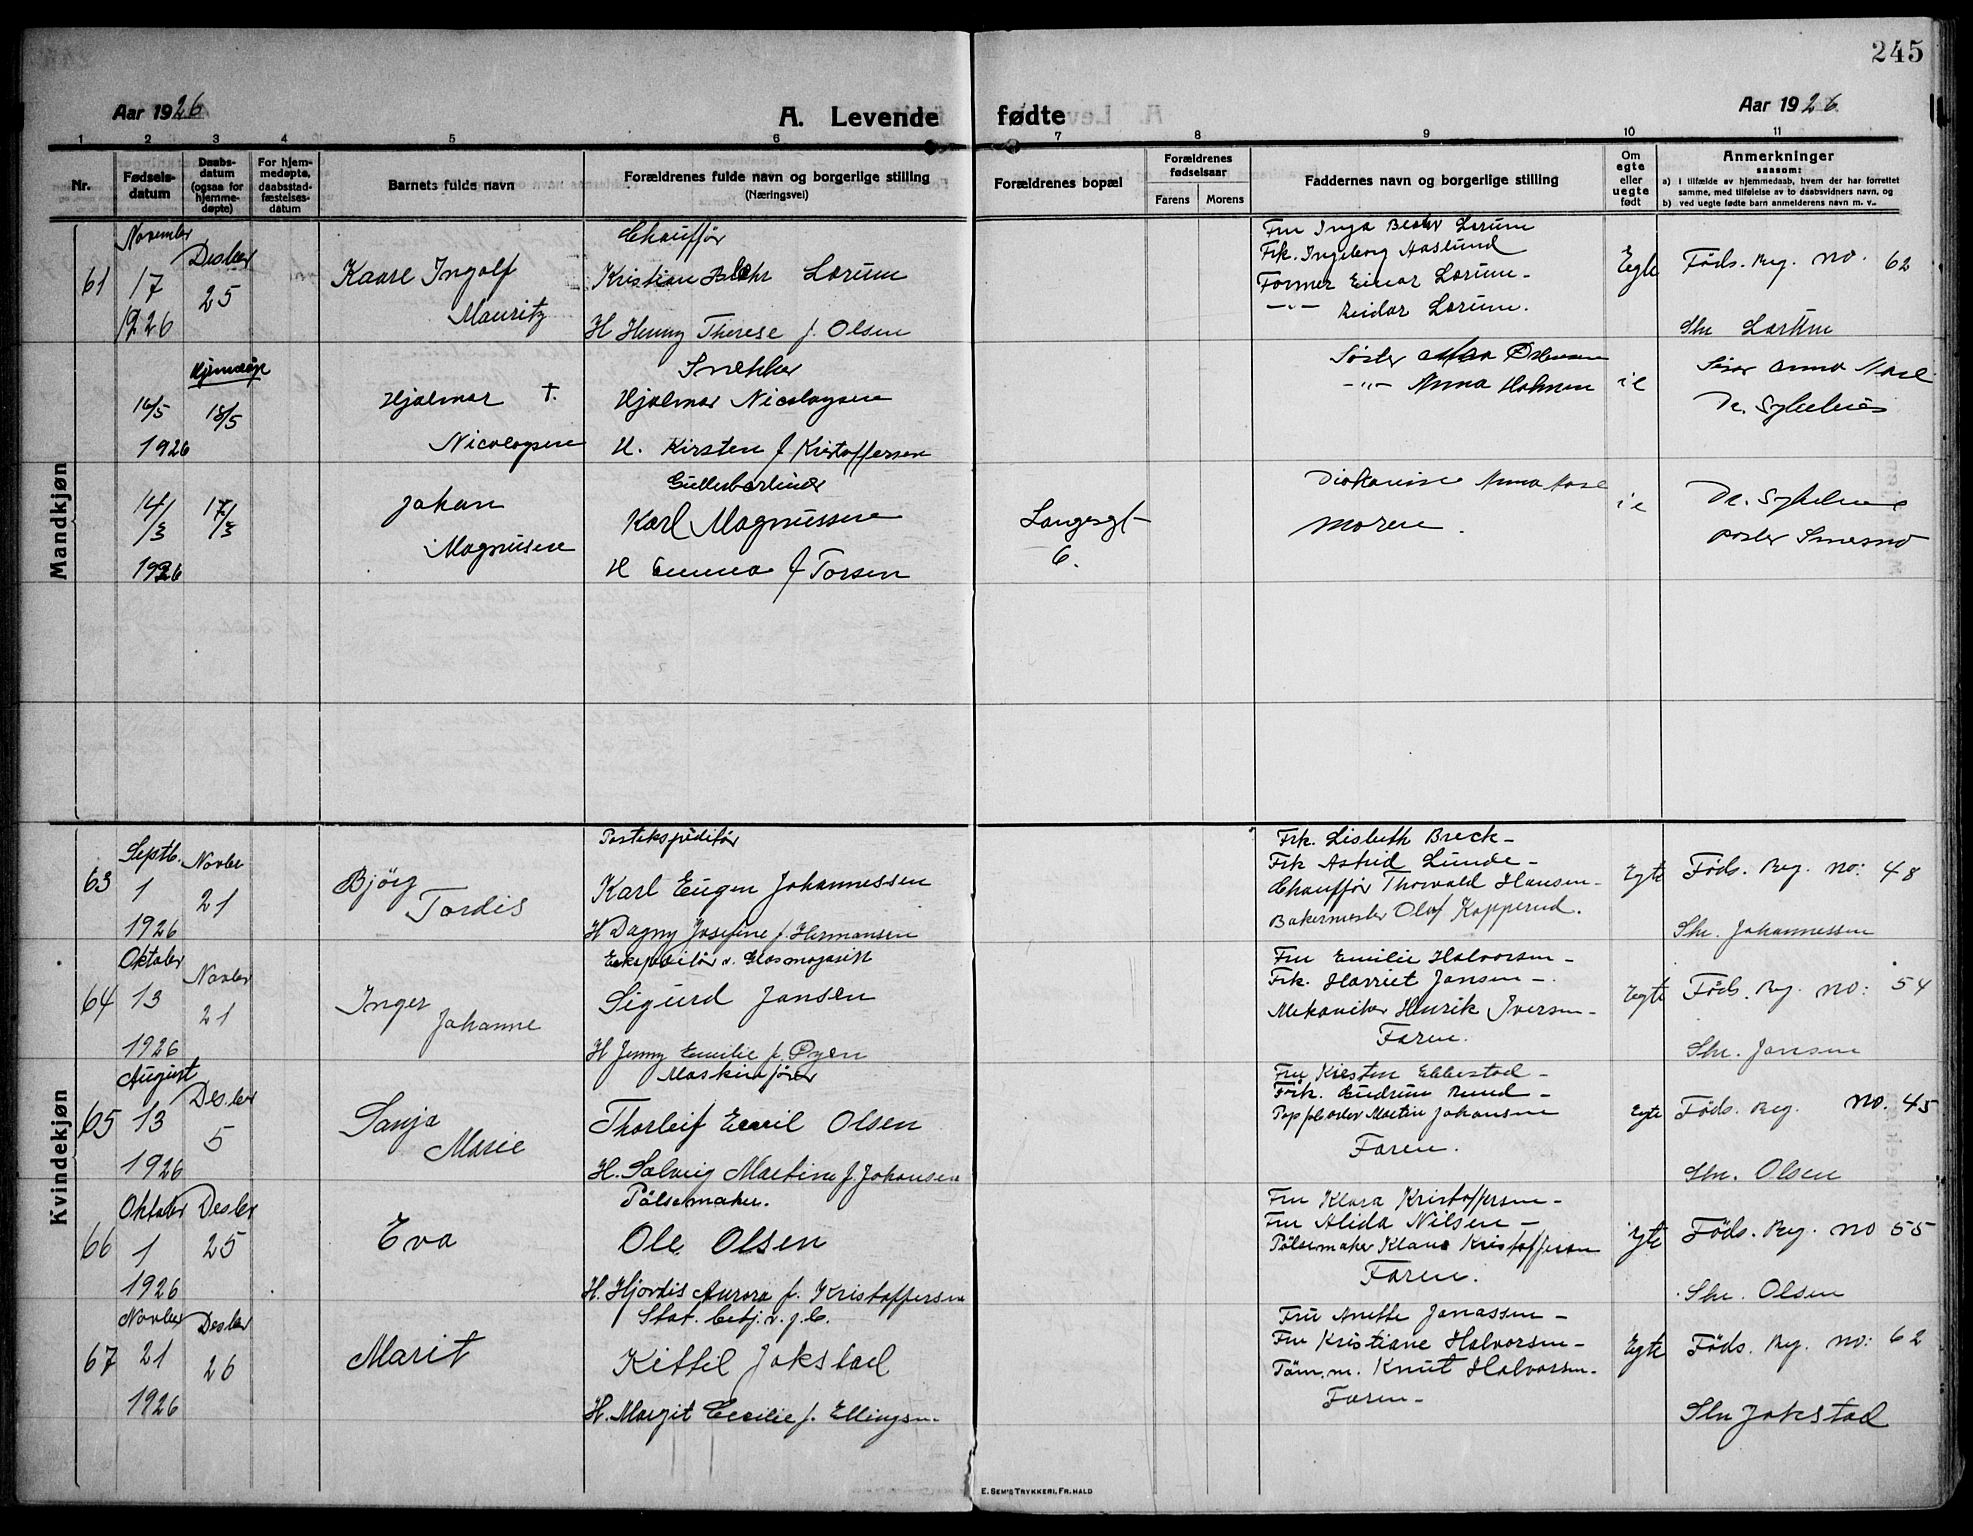 245
Aar 1926
A. Levende
fødte
Aar 1926
1 2 3 4 5 6 7 8 9 10 11
Nr.
Fødsels-
datum
Daabs-
datum
(ogsaa for
hjemme-
døpte)
For hjem-
medøpte,
daabsstad-
fæstelses-
datum
Barnets fulde navn
Forældrenes fulde navn og borgerlige stilling
(Næringsvei)
Forældrenes bopæl
Forældrenes
fødselsaar
Farens Morens
Faddernes navn og borgerlige stilling
Om
egte
eller
uegte
født
Anmerkninger
saasom:
a) i tilfælde av hjemmedaab, hvem der har forrettet
samme, med tilføielse av to daabsvidners navn, og
b) ved uegte fødte barn anmelderens navn m. v.
Mandkjøn
61
November
17
1926
Desber
25
Kaare Ingolf
Mauritz
Chauffør
Kristian Lørum
H Henny Therese f. Olsen
Fru Inga Lørum
Frk. Ingeborg Aaslund
Former Einar Lørum -
-"- Reidar Lørum.
Egte
Føds. Reg. no. 62
Lørum
16/5
1926
Hjemdøpt
18/5
Hjalmar †.
Nicolaysen
Snekker
Hjalmar Nicolaysen
H. Kirsten f Kristoffersen
Søster
-"- Anna Holmen
Anna
14/3
1926
17/3
Johan
Magnussen
Karl Magnussen
H Emma f Torsen
Langesgt
6.
Anna
Moren.
Kvindekjøn
63
Septb.
1
1926
Novber
21
Bjørg
Tordis
Postekspeditør
Karl Eugen Johannessen
H Dagny Josefine f. Hermansen
Frk. Lisbeth Breck -
Frk Astrid Lunde -
Chauffør Thorvald Hansen -
Bakermester Olaf Kopperud.
Egte
Føds. Reg. no: 48
Johannessen
64
Oktober
13
1926
Novber
21
Inger
Johanne
Ekspeditør v. Glasmagasin
Sigurd Jansen
H Jenny Emilie f. Øyen
Fru Emilie Halvorsen -
Frk. Harriet Jansen -
Mekaniker Henrik Iversen -
Faren.
Egte
Føds. Reg. no: 54
Jansen
65
August
13
1926
Desber
5
Sanja
Marie
Maskinfører
Thorleif Emil Olsen
H. Solveig Martine f. Johansen
Fru Kirsten Ebbestad -
Frk. Gudrun Ruud -
Martin Johansen
Faren.
Egte
Føds. Reg. no. 45
Olsen
66
Oktober
1
1926
Desber
25
Eva
Pølsemaker.
Ole Olsen
H. Hjørdis Aurora f. Kristoffersen
Fru Klara Kristoffersen -
Fru Alida Nilsen -
Pølsemaker Klaus Kristoffersen
Faren.
Egte
Føds. Reg. no 55
Olsen
67
Novber
21
1926
Desber
26
Marit
Stat. betj. v. j.b.
Kittil Jokstad
H. Margit Cecilie f. Ellingsen
Fru Anette Jonassen -
Fru Kristiane Halvorsen -
Tøm.m. Knut Halvorsen -
Faren -
Egte
Føds. Reg. no: 62
Jokstad
E. SEM'S TRYKKERI, FR.HALD